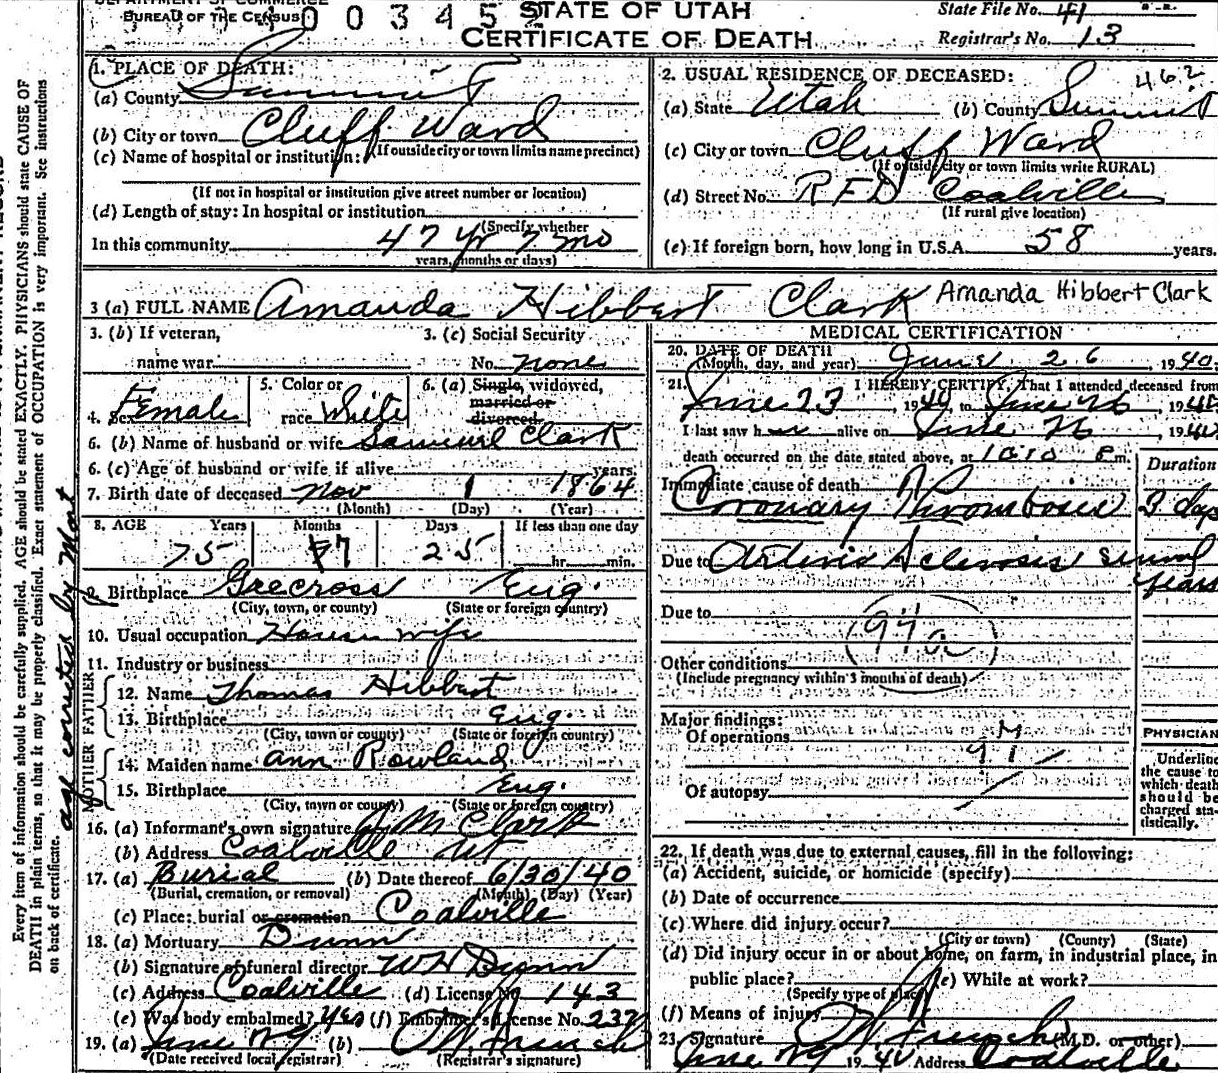 DEPARTMENT OF COMMERCE
BUREAU OF THE CENSUS
STATE OF UTAH
CERTIFICATE OF DEATH
State File No. 41
Registrar's No. 13
1. PLACE OF DEATH:
(a) County Summit
(b) City or town Cluff Ward
(If outside city or town limits name precinct)
(c) Name of hospital or institution:
(If not in hospital or institution give street number or location)
(d) Length of stay: In hospital or institution
(Specify whether
In this community 47 yr 7 mo
years, months or days)
2. USUAL RESIDENCE OF DECEASED: 462
(a) State Utah (b) County Summit
(c) City or town Cluff Ward
(If outside city or town limits write RURAL)
(d) Street No. RFD Coalville
(If rural give location)
(e) If foreign born, how long in U.S.A. 58 years.
3 (a) FULL NAME Amanda Hibbert Clark Amanda Hibbert Clark
3. (b) If veteran, 3. (c) Social Security
name war No. none
4. Sex Female 5. Color or race White 6. (a) Single, widowed, married or divorced
6. (b) Name of husband or wife Samuel Clark
6. (c) Age of husband or wife if alive years.
7. Birth date of deceased Nov 1 1864
(Month) (Day) (Year)
8. AGE Years Months Days If less than one day
75 7 25 hr. min.
9. Birthplace Grecross Eng.
(City, town, or county) (State or foreign country)
10. Usual occupation House wife
11. Industry or business
FATHER
12. Name Thomas Hibbert
13. Birthplace Eng.
(City, town or county) (State or foreign country)
MOTHER
14. Maiden name Ann Rowland
15. Birthplace Eng.
(City, town or county) (State or foreign country)
16. (a) Informant's own signature J M Clark
(b) Address Coalville Ut
17. (a) Burial (b) Date thereof 6/30/40
(Burial, cremation, or removal) (Month) (Day) (Year)
(c) Place: burial or cremation Coalville
18. (a) Mortuary Dunn
(b) Signature of funeral director W H Dunn
(c) Address Coalville (d) License No. 143
(e) Was body embalmed? Yes (f) Embalmer's License No. 237
19. (a) June 29 (b)
(Date received local registrar) (Registrar's signature)
MEDICAL CERTIFICATION
20. DATE OF DEATH
(Month, day, and year) June 26, 1940
21. I HEREBY CERTIFY, That I attended deceased from
June 23, 1940 to June 26, 1940
I last saw her alive on June 26, 1940
death occurred on the date stated above, at 10:10 P m.
Duration
Immediate cause of death
Coronary Thrombosis 3 days
Due to Arterio Sclerosis several years
Due to
94a
Other conditions
(Include pregnancy within 3 months of death)
Major findings:
Of operations
Of autopsy
PHYSICIAN
Underline
the cause to
which death
should be
charged sta-
tistically.
22. If death was due to external causes, fill in the following:
(a) Accident, suicide, or homicide (specify)
(b) Date of occurrence
(c) Where did injury occur?
(City or town) (County) (State)
(d) Did injury occur in or about home, on farm, in industrial place, in
public place? (e) While at work?
(Specify type of place)
(f) Means of injury
23. Signature (M.D. or other)
June 29 1940 Address Coalville
Every item of information should be carefully supplied. AGE should be stated EXACTLY. PHYSICIANS should state CAUSE OF
DEATH in plain terms, so that it may be properly classified. Exact statement of OCCUPATION is very important. See instructions
on back of certificate.